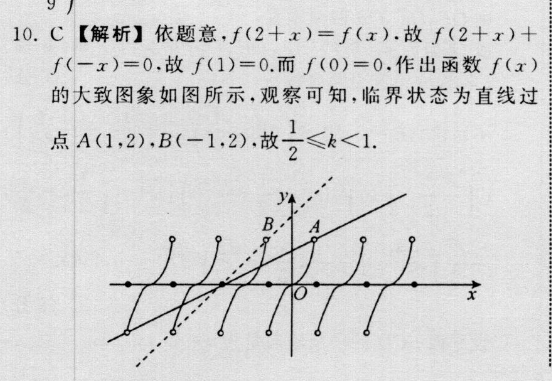 10. C 【解析】 依题意,f(2+x)=f(x).故 f(2+x)+
f(-x)=0,故 f(1)=0.而 f(0)=0,作出函数 f(x)
的大致图象如图所示,观察可知,临界状态为直线过
点 A(1,2),B(-1,2),故 1/2≤k<1.
y
B A
O
x